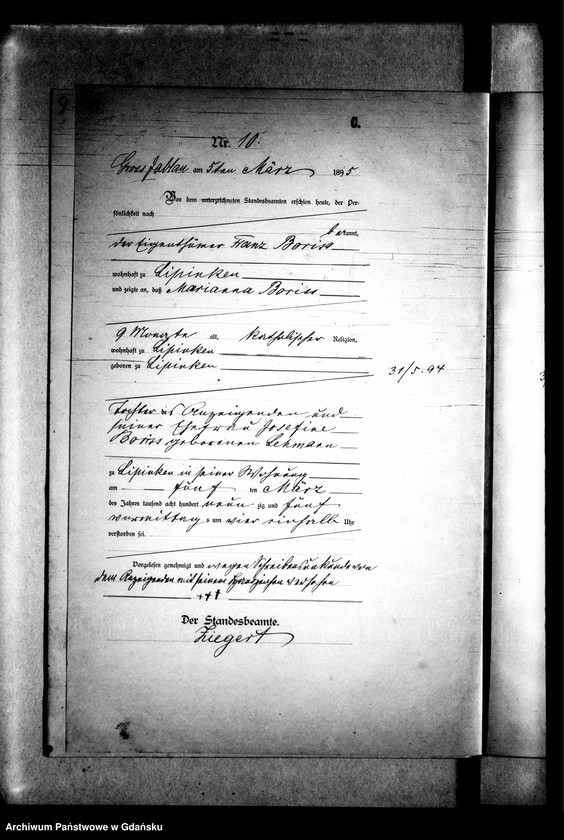 C.
Nr. 10.
Gross Jablau am 5ten März 1895
Vor dem unterzeichneten Standesbeamten erschien heute, der Per-
sönlichkeit nach
bekannt,
der Eigenthümer Franz Boriss
wohnhaft zu Lipinken
und zeigte an, daß Marianna Boriss
9 Monate alt, katholischer Religion,
wohnhaft zu Lipinken
geboren zu Lipinken
31/5. 94
Tochter des Anzeigenden und
seiner Ehefrau Josefine
Boriss geborenen Lehmann
zu Lipinken in seiner Wohnung
am fünf ten März
des Jahres tausend acht hundert neun zig und fünf
vormittags um vier einhalb Uhr
verstorben sei.
Vorgelesen, genehmigt und wegen Schreibensunkunde von
dem Anzeigenden mit seinem Handzeichen versehen
+++
Der Standesbeamte.
Ziegert
Archiwum Państwowe w Gdańsku